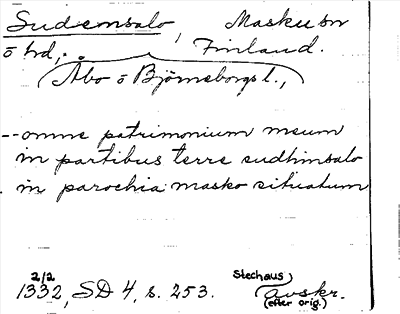 Sudensalo, Masku sn
ö hd, Finland.
Åbo ö Björneborgs l.,
-- omne patrimonium meum
in partibus terre sudhimsalo
in parochia masko situatum
2/2 Stechaus
1332, SD 4, s. 253. avskr.
(efter orig.)